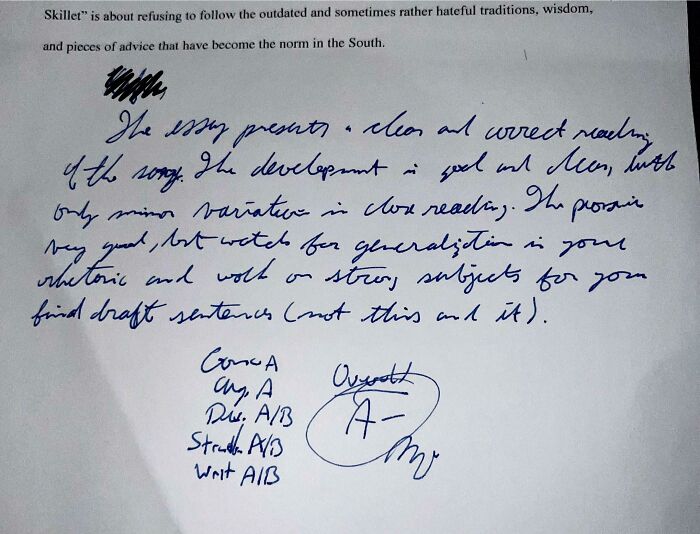 Skillet” is about refusing to follow the outdated and sometimes rather hateful traditions, wisdom,
and pieces of advice that have become the norm in the South.
The essay presents a clear and correct reading
of the song. The development is good and clear, with
only minor variation in close reading. The prose is
very good, but watch for generalization in your
rhetoric and work on strong subjects for your
final draft sentences (not this and it).
Conc A
Org. A
Dev. A/B
Structure A/B
Writ A/B
Overall
A-